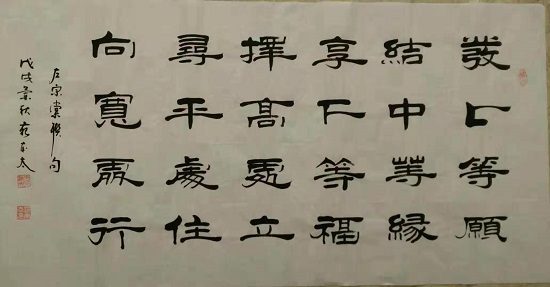 發上等願
結中等緣
享下等福
擇高處立
尋平處住
向寬處行
左宗棠聯句
戊戌秋